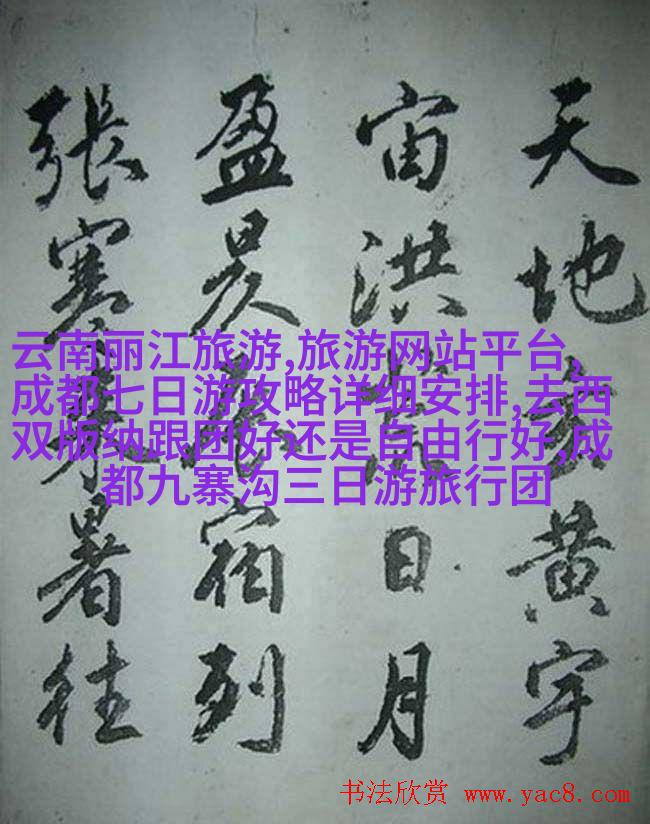 天地玄黄宇
宙洪荒日月
盈昃辰宿列
張寒来暑往
云南丽江旅游,旅游网站平台,
成都七日游攻略详细安排,去西
双版纳跟团好还是自由行好,成
都九寨沟三日游旅行团
书法欣赏 www.yac8.com